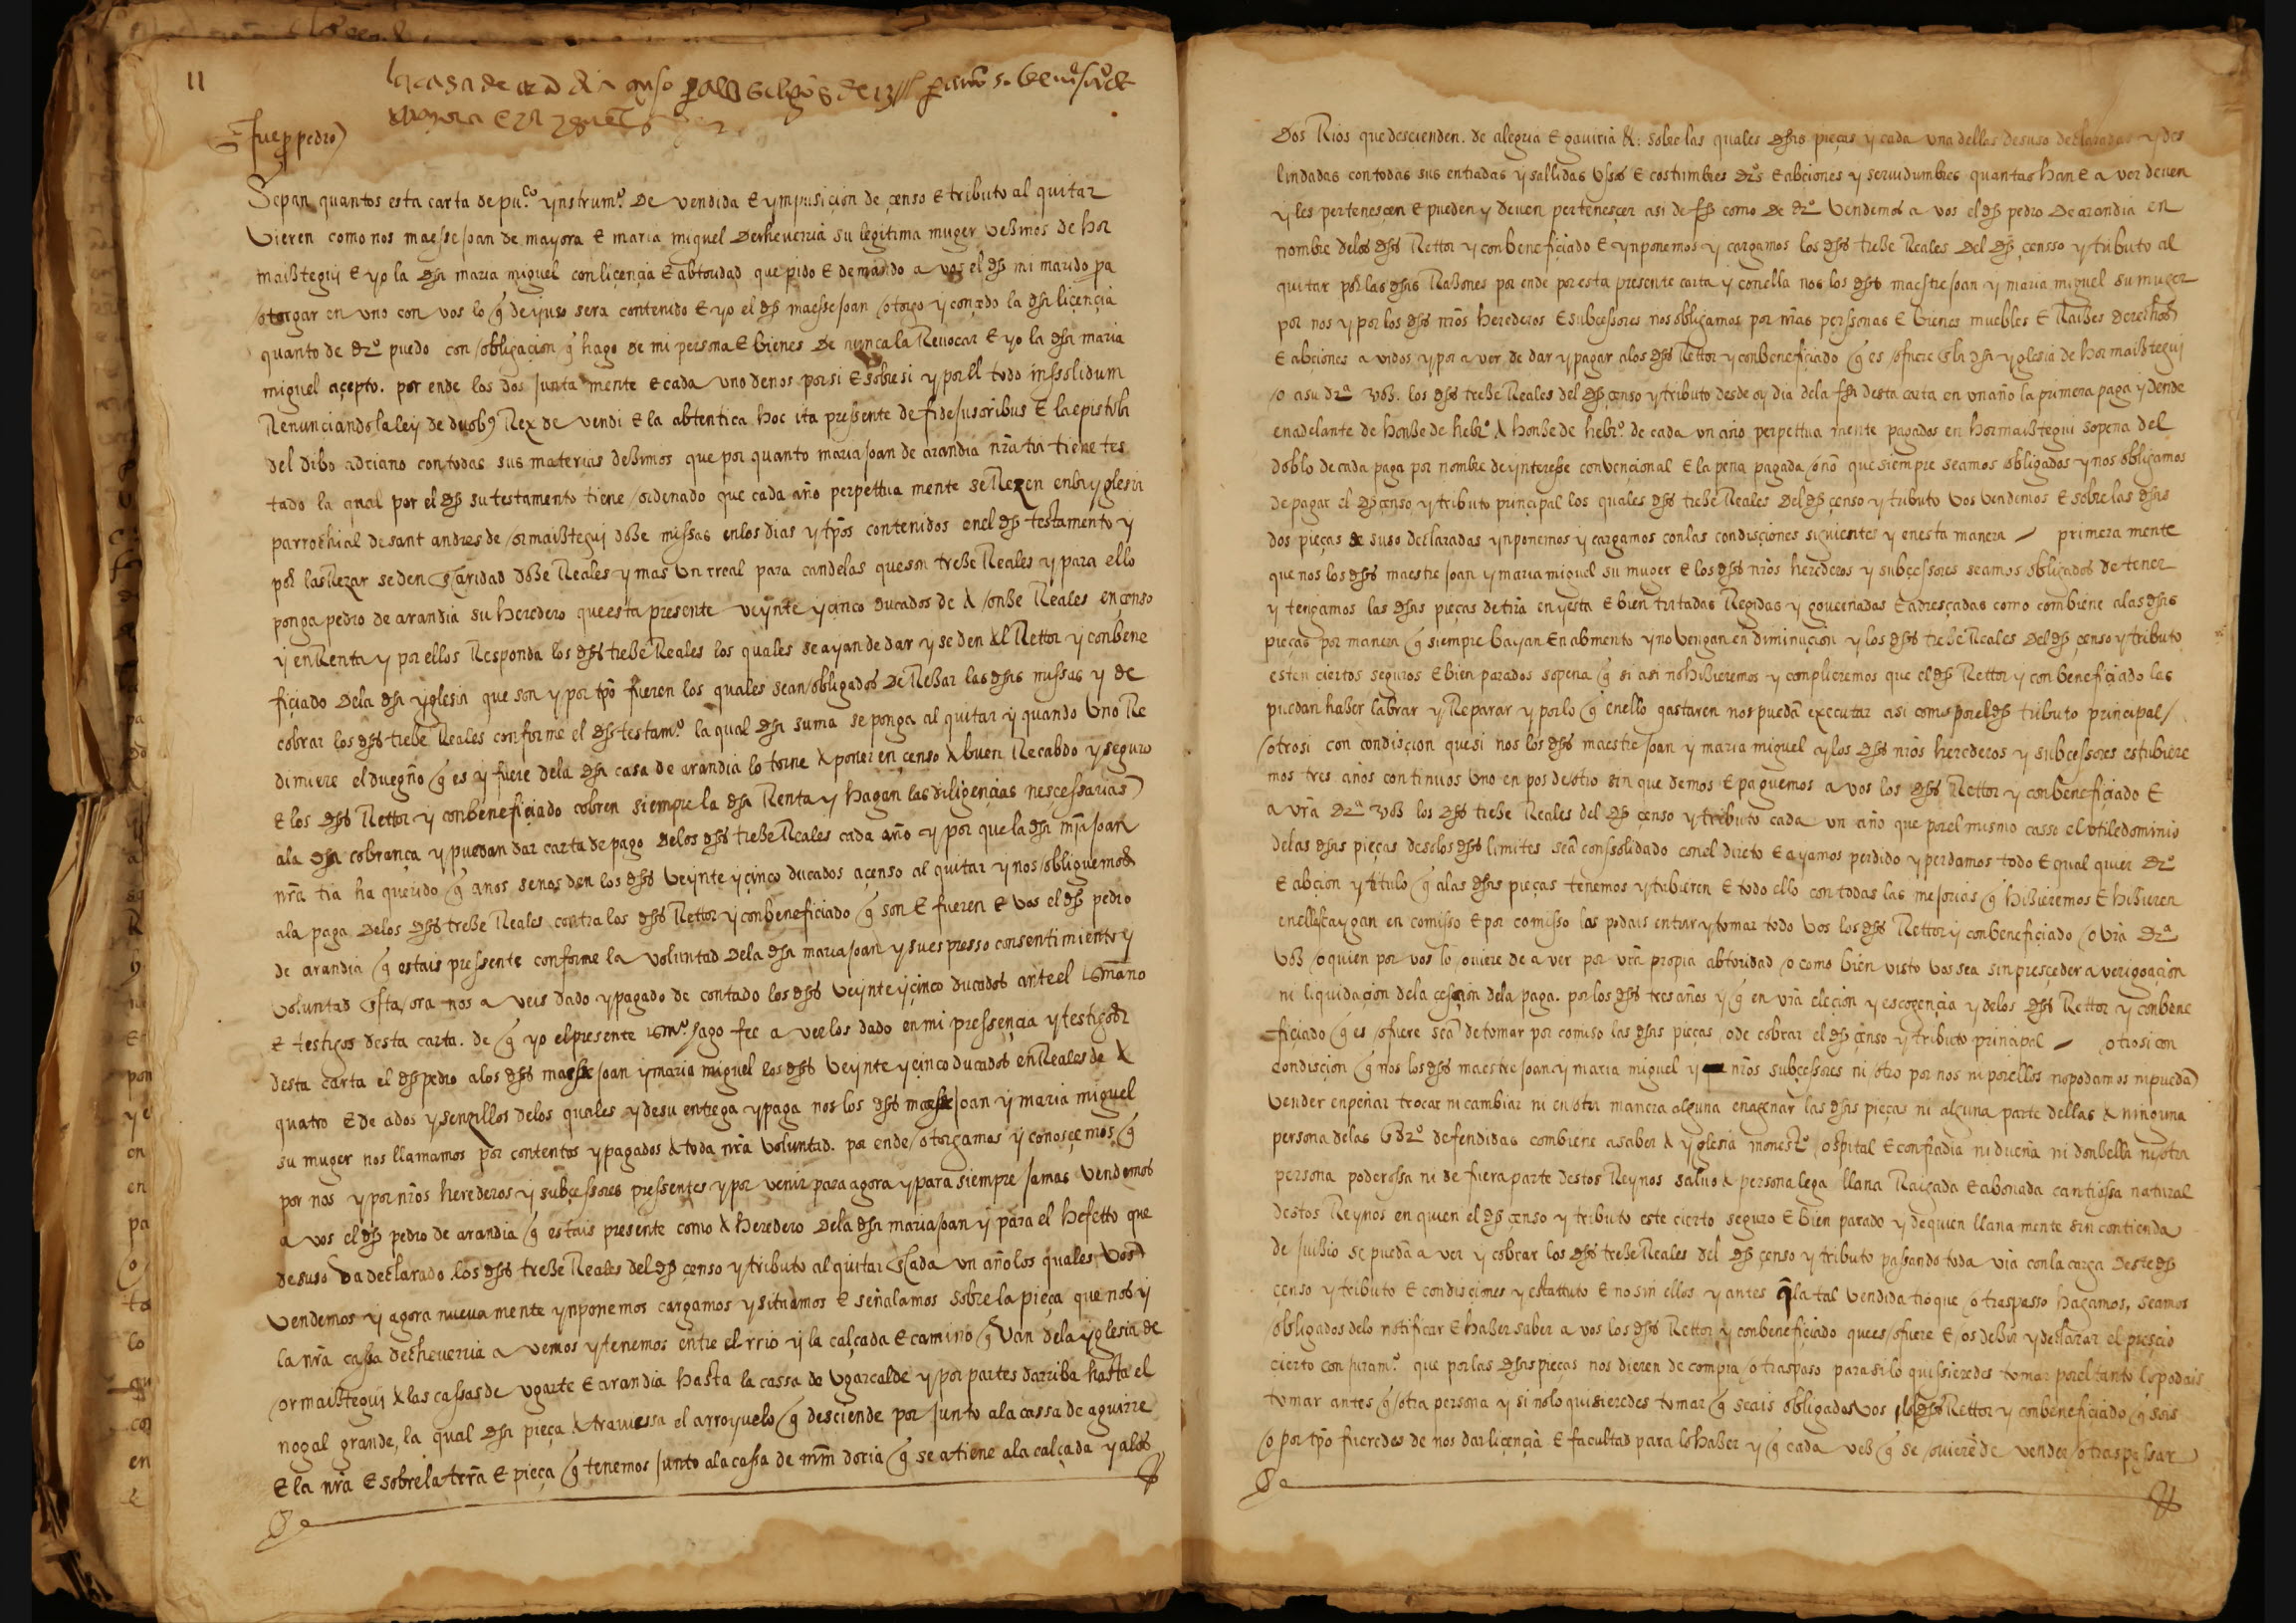 11
la casa de
fue por pedro
Sepan quantos esta carta de pu.co ynstrum.o de vendida E ymposicion de çenso E tributo al quitar
Vieren como nos maesse joan de mayora E maria miguel decheverria su legitima muger veßinos de hor
maißtegui E yo la dha maria miguel con liçençia E abtoridad que pido E demando a vos el dho mi marido pa
otorgar en uno con vos lo q̃ de yuso sera contenido E yo el dho maesse joan otorgo y conçedo la dha liçençia
quanto de dr.o puedo con obligaçion q̃ hago de mi persona E bienes de nunca la Revocar E yo la dha maria
miguel açepto. por ende los dos junta mente E cada uno de nos por si E sobre si y por El todo inssolidum
Renunciando la ley de duobus Rex de vendi E la abtentica hoc ita pressente de fide jusoribus E la epistola
del dibo adriano con todas sus materias deßimos que por quanto maria joan de arandia nr̃a tia tiene tes
tado la qual por el dho su testamento tiene ordenado que cada año perpettua mente se Rezen en la yglesia
parrochial de sant andres de ormaißtegui doße missas en los dias y tp̃os contenidos en el dho testamento y
por las Rezar se den Caridad doße Reales y mas un rreal para candelas que son treße Reales y para ello
ponga pedro de arandia su heredero que esta presente veynte y çinco ducados de A onße Reales en çenso
y en Renta y por ellos Responda los dhos treße Reales los quales se ayan de dar y se den Al Rettor y conbene
ficiado de la dha yglesia que son y por tp̃o fueren los quales sean obligados de Reßar las dhas missas y de
cobrar los dhos treße Reales conforme el dho testam.o la qual dha suma se ponga al quitar y quando Uno Re
dimiere el duegño q̃ es y fuere de la dha casa de arandia lo torne A poner en çenso A buen Recabdo y seguro
E los dhos Rettor y conbenefiçiado cobren siempre la dha Renta y hagan las diligençias nesçessarias
a la dha cobrança y puedan dar carta de pago de los dhos treße Reales cada año y por que la dha mja joan
nr̃a tia ha querido q̃ a nos se nos den los dhos veynte y çinco ducados a çenso al quitar y nos obliguemos
a la paga de los dhos treße Reales contra los dhos Rettor y conbenefiçiado q̃ son E fueren E vos el dho pedro
de arandia q̃ estais pressente conforme la voluntad de la dha maria joan y su espresso consentimiento y
voluntad Esta ora nos aveis dado y pagado de contado los dhos veynte y çinco ducados ante el escriuano
E testigos desta carta. de q̃ yo el presente escriu.o hago fee a veelos dado en mi pressençia y testigos
desta carta el dho pedro a los dhos maesse joan y maria miguel los dhos veynte y çinco ducados en Reales de A
quatro E de a dos y senzillos de los quales y de su entrega y paga nos los dhos maesse joan y maria miguel
su muger nos llamamos por contentos y pagados A toda nr̃a voluntad. por ende otorgamos y conosçemos q̃
por nos y por nr̃os herederos y subçessores pressentes y por venir para agora y para siempre jamas vendemos
a vos el dho pedro de arandia q̃ estais presente como A heredero de la dha maria joan y para el hefetto que
de suso va declarado los dhos treße Reales del dho çenso y tributo al quitar Cada un año los quales vos
vendemos y agora nueva mente ynponemos cargamos y situamos E señalamos sobre la pieça que nos y
la nr̃a cassa de cheverria avemos y tenemos entre el rrio y la calçada E camino q̃ van de la yglesia de
ormaißtegui A las cassas de ugarte E arandia hasta la cassa de Ugarcalde y por partes darriba hasta el
nogal grande, la qual dha pieça A traviessa el arroyuelo q̃ desciende por junto a la cassa de aguirre
E la nr̃a E sobre la terr̃a E pieça q̃ tenemos junto a la cassa de mr̃n doria q̃ se atiene a la calçada y a los
Dos Rios que descienden. de alegria E gaviria &: sobre las quales dhas pieças y cada una dellas de suso declaradas y des
lindadas con todas sus entradas y sallidas Ussos E costumbres dr.os E abçiones y servidumbres quantas han E aver deven
y les pertenesçen E pueden y deven pertenesçer asi de fho como de dr.o Vendemos a vos el dho pedro de arandia en
nombre de los dhos Rettor y conbenefiçiado E ynponemos y cargamos los dhos treße Reales del dho çensso y tributo al
quitar por las dhas Raßones por ende por esta presente carta y con ella nos los dhos maestre joan y maria miguel su muger
por nos y por los dhos nr̃os herederos E subcessores nos obligamos por nr̃as perssonas E bienes muebles E Raißes derechos
E abçiones avidos y por aver, de dar y pagar a los dhos Rettor y conbenefiçiado q̃ es o fuere En la dha yglesia de hormaißtegui
o a su dr.a voß. los dhos treße Reales del dho çenso y tributo desde oy dia de la fha desta carta en un año la primera paga y dende
en adelante de honße de hebr.o A honße de hebr.o de cada un año perpettua mente pagados en hormaißtegui so pena del
doblo de cada paga por nombre de ynteresse convençional E la pena pagada o no que siempre seamos obligados y nos obligamos
de pagar el dho çenso y tributo prinçipal los quales dhos treße Reales del dho çenso y tributo vos vendemos E sobre las dhas
dos pieças de suso declaradas ynponemos y cargamos con las condisçiones siguientes y en esta manera — primera mente
que nos los dhos maestre joan y maria miguel su muger E los dhos nr̃os herederos y subçessores seamos obligados de tener
y tengamos las dhas pieças de tr̃ra en yesta E bien tratadas Regidas y governadas E adresçadas como combiene a las dhas
pieças por manera q̃ siempre bayan En abmento y no vengan en diminuçion y los dhos treße Reales del dho çenso y tributo
esten ciertos seguros E bien parados so pena q̃ si asi no hißieremos y complieremos que el dho Rettor y conbenefiçiado las
puedan haßer labrar y Reparar y por lo q̃ en ello gastaren nos puedã executar asi como por el dho tributo principal/
otrosi con condisçion que si nos los dhos maestre joan y maria miguel y los dhos nr̃os herederos y subçessores estubiere
mos tres años continuos Uno en pos de otro sin que demos E paguemos a vos los dhos Rettor y conbenefiçiado E
a vr̃a dr.a voß los dhos treße Reales del dho çenso y tributo cada un año que por el mismo casso el utile dominio
de las dhas pieças de so los dhos limites seã conssolidado con el direto E ayamos perdido y perdamos todo E qual quier dr.o
E abcion y titulo q̃ a las dhas pieças tenemos y tubieren E todo ello con todas las mejorias q̃ hißieremos E hißieren
en ellas caygan en comisso E por comisso las podais entrar y tomar todo vos los dhos Rettor y conbenefiçiado o vr̃a dr.a
voß o quien por vos lo oviere de aver por vr̃a propia abtoridad o como bien visto vos sea sin presçeder averigoaçion
ni liquidaçion de la cession de la paga. por los dhos tres años y q̃ en vr̃a eleçion y escogençia y de los dhos Rettor y conbene
ficiado q̃ es o fuere seã de tomar por comiso las dhas pieças o de cobrar el dho çenso y tributo prinçipal — otrosi con
condisçion q̃ nos los dhos maestre joan y maria miguel y nr̃os subçessores ni otro por nos ni por ellos no podamos ni puedã
Vender enpeñar trocar ni cambiar ni en otra manera alguna enagenar las dhas pieças ni alguna parte dellas A ninguna
persona de las E dr.o defendidas combiene a saber A yglesia monest.o ospital E confradia ni dueña ni donßella ni otra
persona poderossa ni de fuera parte destos Reynos salvo A persona lega llana Raigada E abonada cantiossa natural
destos Reynos en quien el dho çenso y tributo este cierto seguro E bien parado y de quien llana mente sin contienda
de juißio se puedã aver y cobrar los dhos treße Reales del dho çenso y tributo passando toda via con la carga deste dho
çenso y tributo E condisçiones y estattuto E no sin ellos y antes q̃ la tal vendida troque o traspasso hagamos, seamos
obligados de lo notificar E haßer saber a vos los dhos Rettor y conbenefiçiado que es o fuere E os deßir y declarar el presçio
cierto con juram.o que por las dhas pieças nos dieren de compra o traspaso para si lo quissieredes tomar por el tanto lo podais
tomar antes q̃ otra persona y si no lo quisieredes tomar q̃ seais obligados vos los dhos Rettor y conbenefiçiado q̃ sois
o por tp̃o fueredes de nos dar liçençia E facultad para lo haßer y q̃ cada veß q̃ se oviere de vender o traspassar